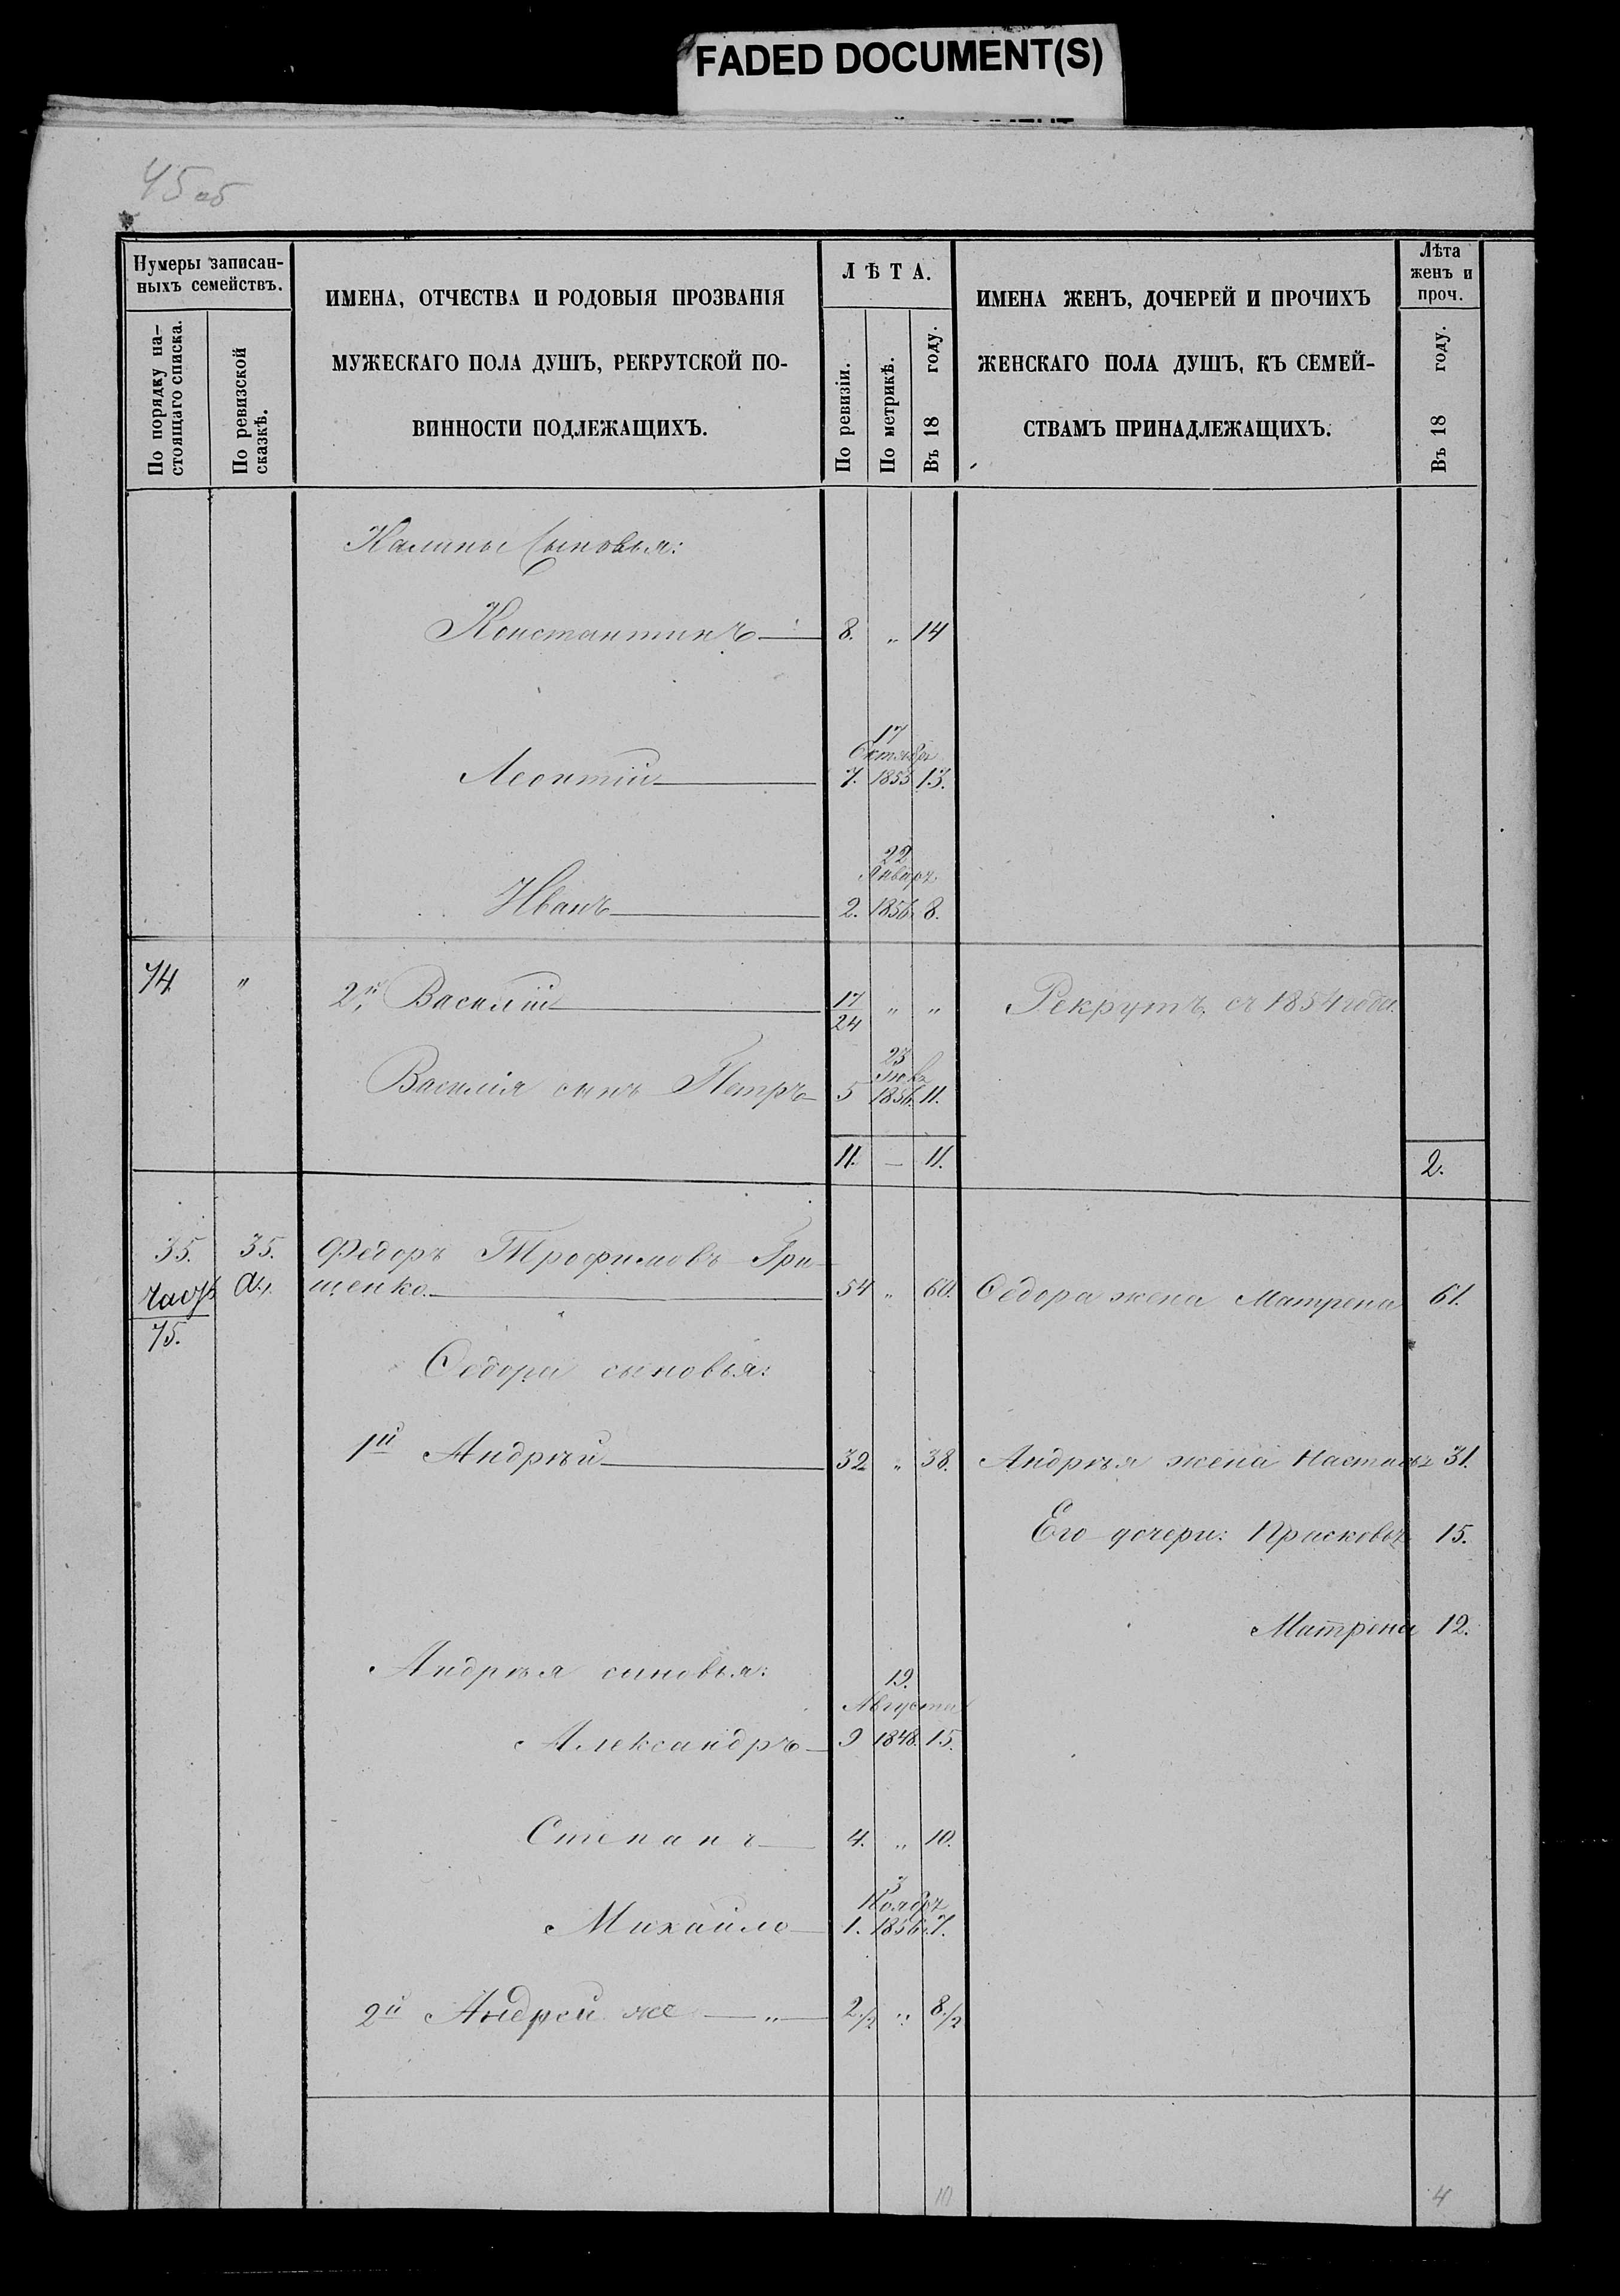 FADED DOCUMENT(S)
45 об
Нумеры записан-
ныхъ семействъ.
По порядку на-
стоящаго списка.
По ревизской
сказкѣ.
ИМЕНА, ОТЧЕСТВА И РОДОВЫЯ ПРОЗВАНІЯ
МУЖЕСКАГО ПОЛА ДУШЪ, РЕКРУТСКОЙ ПО-
ВИННОСТИ ПОДЛЕЖАЩИХЪ.
ЛѢТА.
По ревизіи.
По метрикѣ.
Въ 18 году.
ИМЕНА ЖЕНЪ, ДОЧЕРЕЙ И ПРОЧИХЪ
ЖЕНСКАГО ПОЛА ДУШЪ, КЪ СЕМЕЙ-
СТВАМЪ ПРИНАДЛЕЖАЩИХЪ.
Лѣта
женъ и
проч.
Въ 18 году.
Калины Сыновья:
Константинъ 8. „ 14
17
Октябрь
Леонтій 7. 1853 13.
22
Январь
Иванъ 2. 1856 8.
74 „ 2й Василій 17 „ „ Рекрутъ съ 1854 года.
24
23
Василія сынъ Петръ 5 11.
11. — 11. 2.
35. 35. Федоръ Трофимовъ Гри-
часть а. щенко 54 „ 60. Федора жена Матрена 61.
75.
Федора сыновья:
1й Андрѣй 32 „ 38. Андрѣя жена Настасья 31.
Его дочери: Прасковья 15.
Матрена 12.
Андрѣя сыновья:
19.
Августа
Александръ 9 1848. 15.
Степанъ 4. „ 10.
3
Ноябрь
Михайло 1. 1856. 7.
2й Андрей же „ 2 1/2 „ 8 1/2
10 4